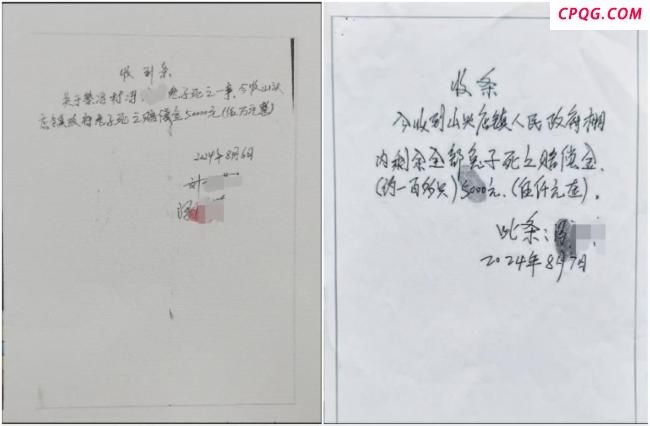 CPQG.COM
收到条
关于蔡冯村冯 兔子死之一案,今收山头
店镇政府兔子死之赔偿金50000元(伍万元整)
2024年8月6日
收条
今收到山头店镇人民政府棚
内剩余全部兔子死之赔偿金,
(约一百多只)5000元.(伍仟元整).
此条:
2024年8月7日